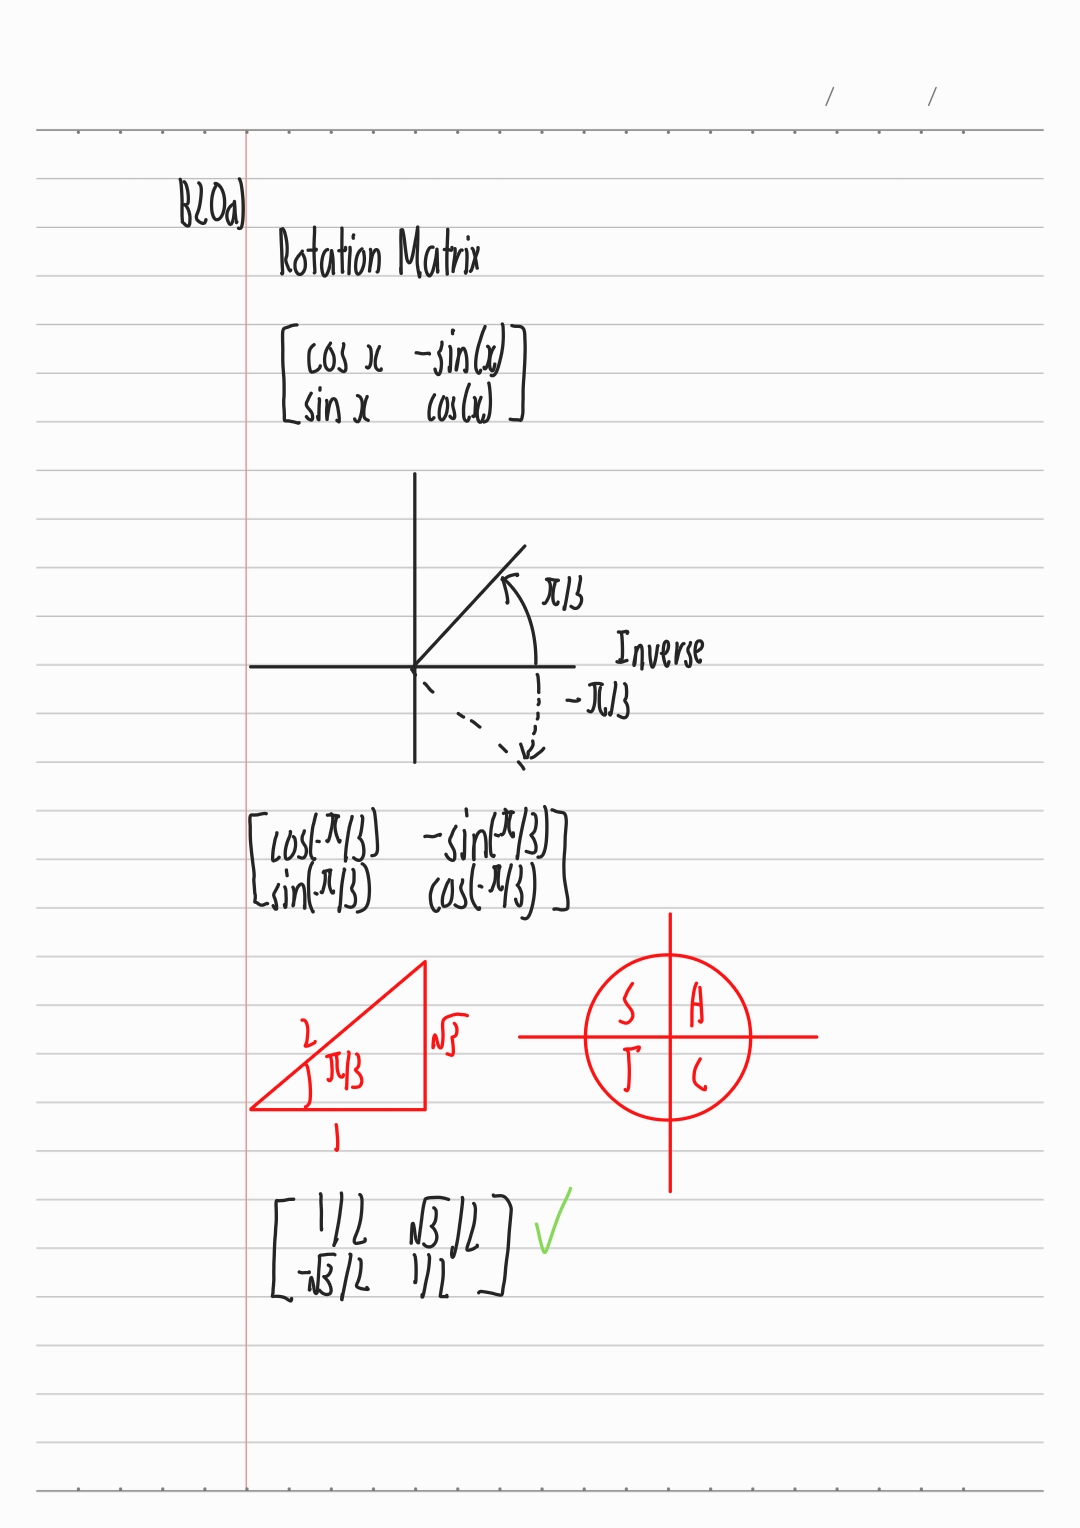 B20a)
Rotation Matrix
[cos x -sin(x)
sin x cos(x)]
π/3
Inverse
-π/3
[cos(-π/3) -sin(-π/3)
sin(-π/3) cos(-π/3)]
2
π/3
√3
1
S A
T C
[1/2 √3/2
-√3/2 1/2] ✓